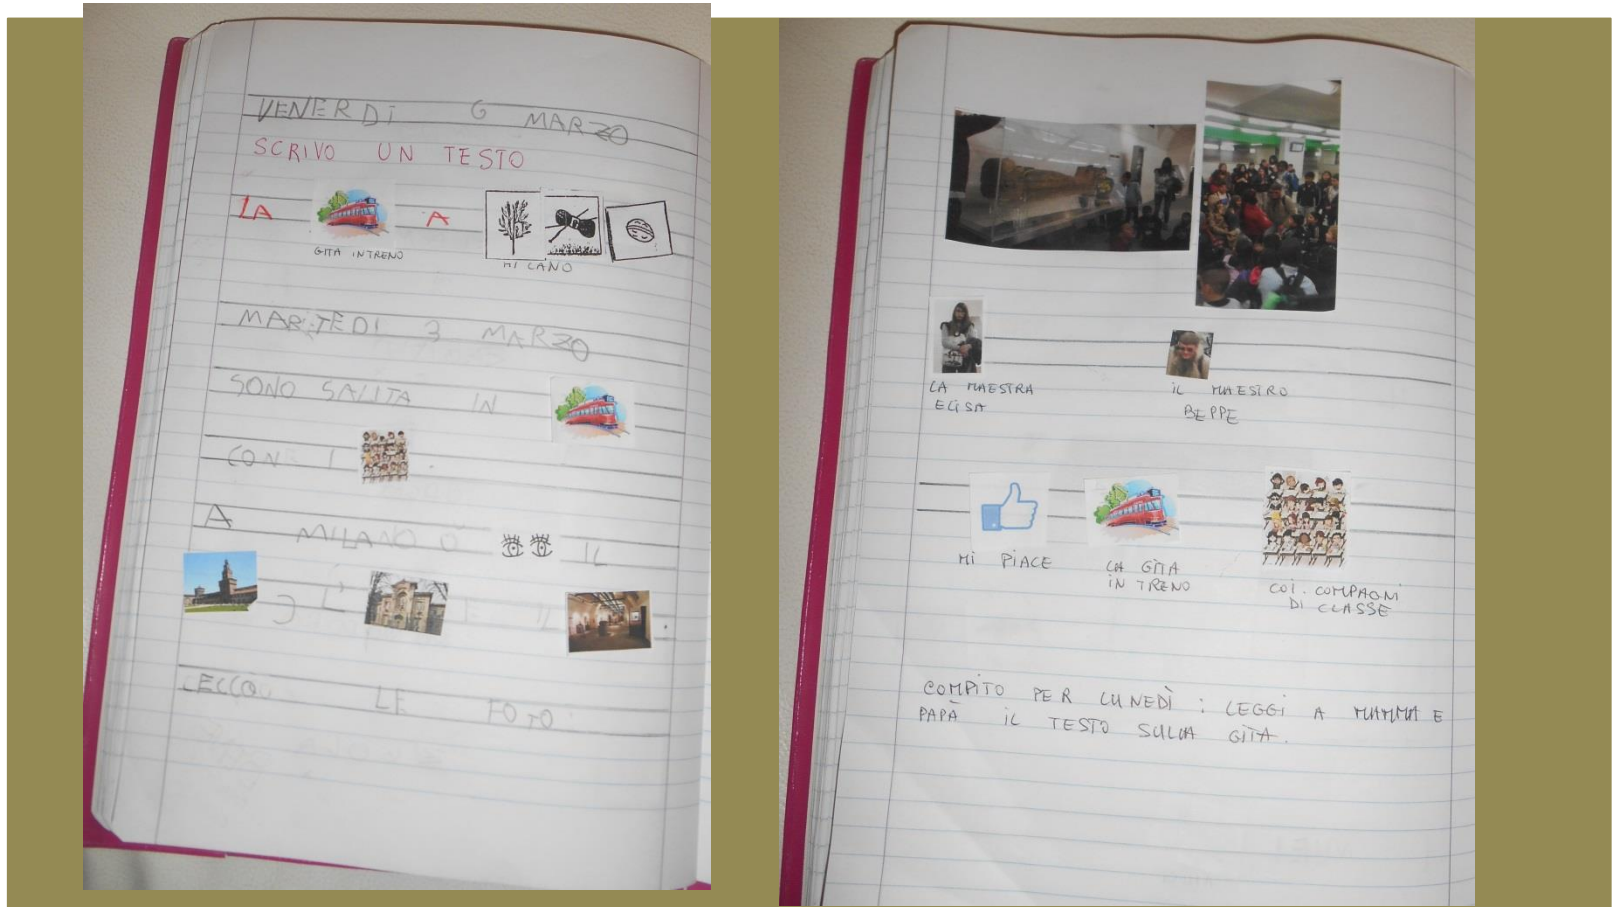 VENERDI 6 MARZO
SCRIVO UN TESTO
LA A
GITA IN TRENO
MILANO
MARTEDI 3 MARZO
SONO SALITA IN
CON I
A MILANO O IL
L' IL
ECCO LE FOTO
LA MAESTRA
ELISA
IL MAESTRO
BEPPE
MI PIACE
LA GITA
IN TRENO
COI COMPAGNI
DI CLASSE
COMPITO PER LUNEDÌ : LEGGI A MAMMA E
PAPÀ IL TESTO SULLA GITA.